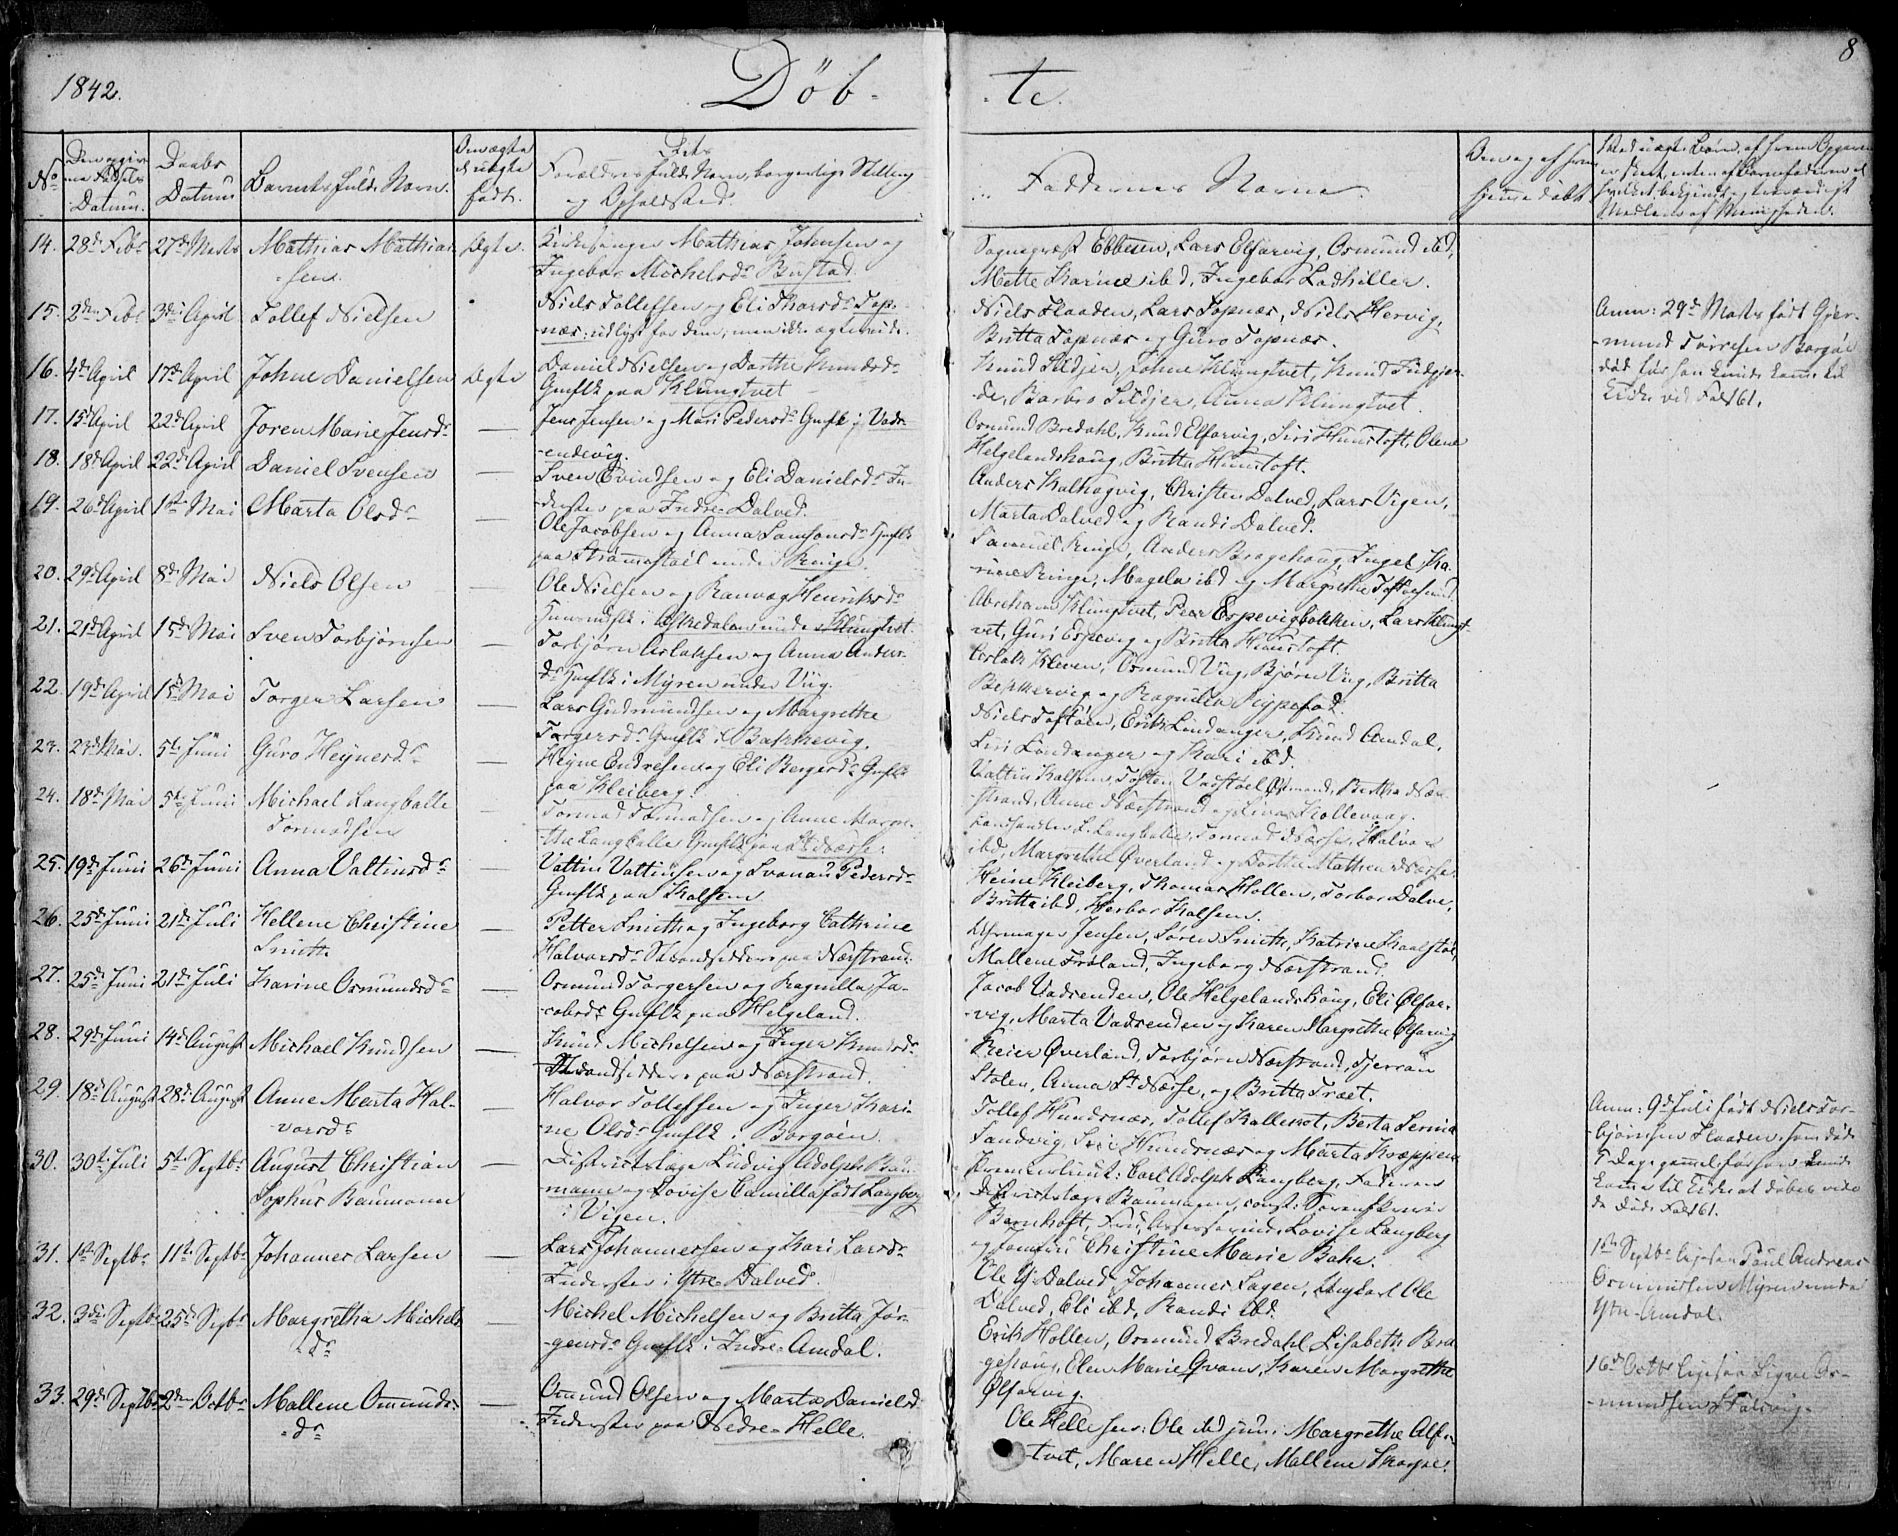 1842.
Döb-
-te.
8
No
Den opgivne Fødsels Datum.
Daabs Datum
Barnets fulde Navn.
Om ægte ell. uægte født.
Forældres fulde Navn, borgerlige Stilling
og Opholdsted.
Faddernes Navne
14. 28de Febr 27de Marts Mathias Mathias-
-sen. Ægte. Kirkesanger Mathias Johnsen og
Ingebor Michelsdr Bustad.
Sognepræst Ebbesen, Lars Elfarvig, Osmund ibd,
Mette Karine ibd, Ingebor Ladhiller.
15. 2den Febr 3die April Tollef Nielsen
Niels Tollefsen og Eli Tharsdr Top-
-nær: udlyst for dem, men ikke ægteviede.
Niels Flaaden, Lars Topnær, Niels Hervig,
Britta Topnær og Guro Topnær.
Anm: 29de Marts født Gjer-
-mund Torresen Borgøe
16. 4de April 17de April Johne Danielsen Ægte
Daniel Nielsen og Dorthe Knudsdr
Gmflk paa Klungtvet
Knud Sildjer, Johne Klungtvet,
Barbro Sildjer, Anna Klungtvet.
17. 15de April 22de April Joren Marie Jensdr
Jens Jensen og Mari Pedersdr Gmflk i Vadr-
-endevig.
Osmund Bredahl, Knud Elfarvig, Siri Hunstoft, Olene
Helgelandshaug, Britta Hunstoft.
18. 18de April 22de April Daniel Svensen
Sven Evindsen og Eli Danielsdr In-
-derster paa Indre-Dalved.
Anders Kalhagvig, Christen Dalved, Lars Vigen,
Marta Dalved og Randi Dalved.
19. 26de April 1ste Mai Marta Olsdr
Ole Jacobsen og Anna Samsonsdr Gmflk
paa Strømmestøel under Ringe.
Samuel Ringe, Anders Bragehaug, Inger Ka-
-rine Ringe, Magela ibd og Margrethe
20. 29de April 8de Mai Niels Olsen
Ole Nielsen og Ranvog Henriksdr
Huusmdflk i Askedalen under Klungtvet.
Abraham Klungtvet, Peer Espevigbakken, Lars Klungt-
vet, Guri Espevig og Britta Hunstoft.
21. 21de April 15de Mai Sven Torbjørnsen
Torbjørn Aslaksen og Anna Anders-
dr Gmflk i Myren under Viig.
Aslak Kleven, Osmund Viig, Bjørn Viig, Britta
Bekkervig og Ragnilla Rypefod.
22. 19de April 15de Mai Torger Larsen
Lars Gudmundsen og Margrethe
Torgersdr Gmflk i Bakkevig.
Niels Toftøen, Erik Lindanger, Knud Amdal,
Siri Lindanger og Kari ibd.
23. 23de Mai. 5te Juni Guro Heynersdr
Heyne Endresen og Eli Bergersdr Gmflk
paa Kleiberg.
Valtin Kalsem, Tosten Vadstøel Osmund, Bertha Nær-
strand, Anne Nærstrand og
24. 18de Mai 5te Juni Michael Langballe
Tormodsen
Tormod Tormodsen og Anne Margre-
-the Langballe Gmflk paa St. Nærse.
L. Langballe, Tormod Nærse, Halvor
ibd, Margrethe Øverland og Dorthe Mathea Nærse.
25. 19de Juni 26de Juni Anna Valtinsdr
Valtin Valtinsen og Svanau? Pedersdr
Gmflk paa Kalsem
Heine Kleiberg, Thomas Hollen, Torbor Dalve,
Britta ibd, Herbor Kalsem.
26. 25de Juni 21de Juli Hellene Christine
Smith
Petter Smith og Ingeborg Cathrine
Halvorsdr Strandsiddere paa Nærstrand.
Uhrmager Jensen, Søren Smith, Katrine Kaalstøl,
Mallene Frøland, Ingeborg Nærstrand.
27. 25de Juni 21de Juli Karine Osmundsdr
Osmund Torgersen og Ragnilla Ja-
-cobsdr Gmflk paa Helgeland.
Jacob Vadsenden, Ole Helgelandshaug, Eli Ølfar-
vig, Marta Vadsenden og Karen Margrethe Ølfarvig
28. 29de Juni 14de August Michael Knudsen
Knud Michelsen og Inger Knudsdr
Strandsiddere paa Nærstrand.
Reier Øverland, Torbjørn Nærstrand, Tjerran
Stolen, Anna St. Nærse, og Britta Træet.
29. 18de August 28de August Anne Marta Hal-
-vorsdr
Halvor Tollefsen og Inger Kari-
ne Olsdr Gmflk i Borgøen.
Tollef Hundsnær, Tollef Kallevot, Berta Serina
Sandvig, Siri Hundsnær og Marta Kræppene
Anm: 9de Juli født Niels Tor-
-bjørnsen Flaaden, som døde
30. 30te Juli 5te Septbr August Christian
Sophus Baumann
Districtslæge Ludvig Adolph Bau-
mann og Lovise Camilla født Langberg
i Vigen.
Premierlieut: Carl Adolph Langberg, Faderen
Districtslæge Baumann, const: Sorenskriver
Bernhoft, Fru Assessorinde Lovise Langberg
og Jomfru Christine Marie Bahr.
31. 1ste Septbr 11te Septbr Johannes Larsen
Lars Johannessen og Kari Larsdr
Inderster i Ytre-Dalved.
Ole Y. Dalved Johannes Lagen, Ungkarl Ole
Dalved, Eli ibd, Randi ibd.
1ste Septbr ligesaa Paul Andreas
Osmundsen Myren under
Ytre-Amdal.
32. 3die Septbr 25de Septbr Margretha Michels
dr
Michel Michelsen og Britta Jør-
-gensdr Gmflk i Indre-Amdal.
Erik Hollen, Osmund Bredahl Lisabeth Bra
gehaug, Elen Marie Qvam, Karen Margrethe
Ølfarvig.
16de Octbr ligesaa Sigve Os-
-mundsen Stølsvig.
33. 29de Septbr 2den Octbr Mallene Omunds-
-dr
Omund Olsen og Marta Danielsd
Inderster paa Nedre-Helle.
Ole Helle sen: Ole ibd jun: Margrethe Alf-
-tvet, Maren Helle, Mallene